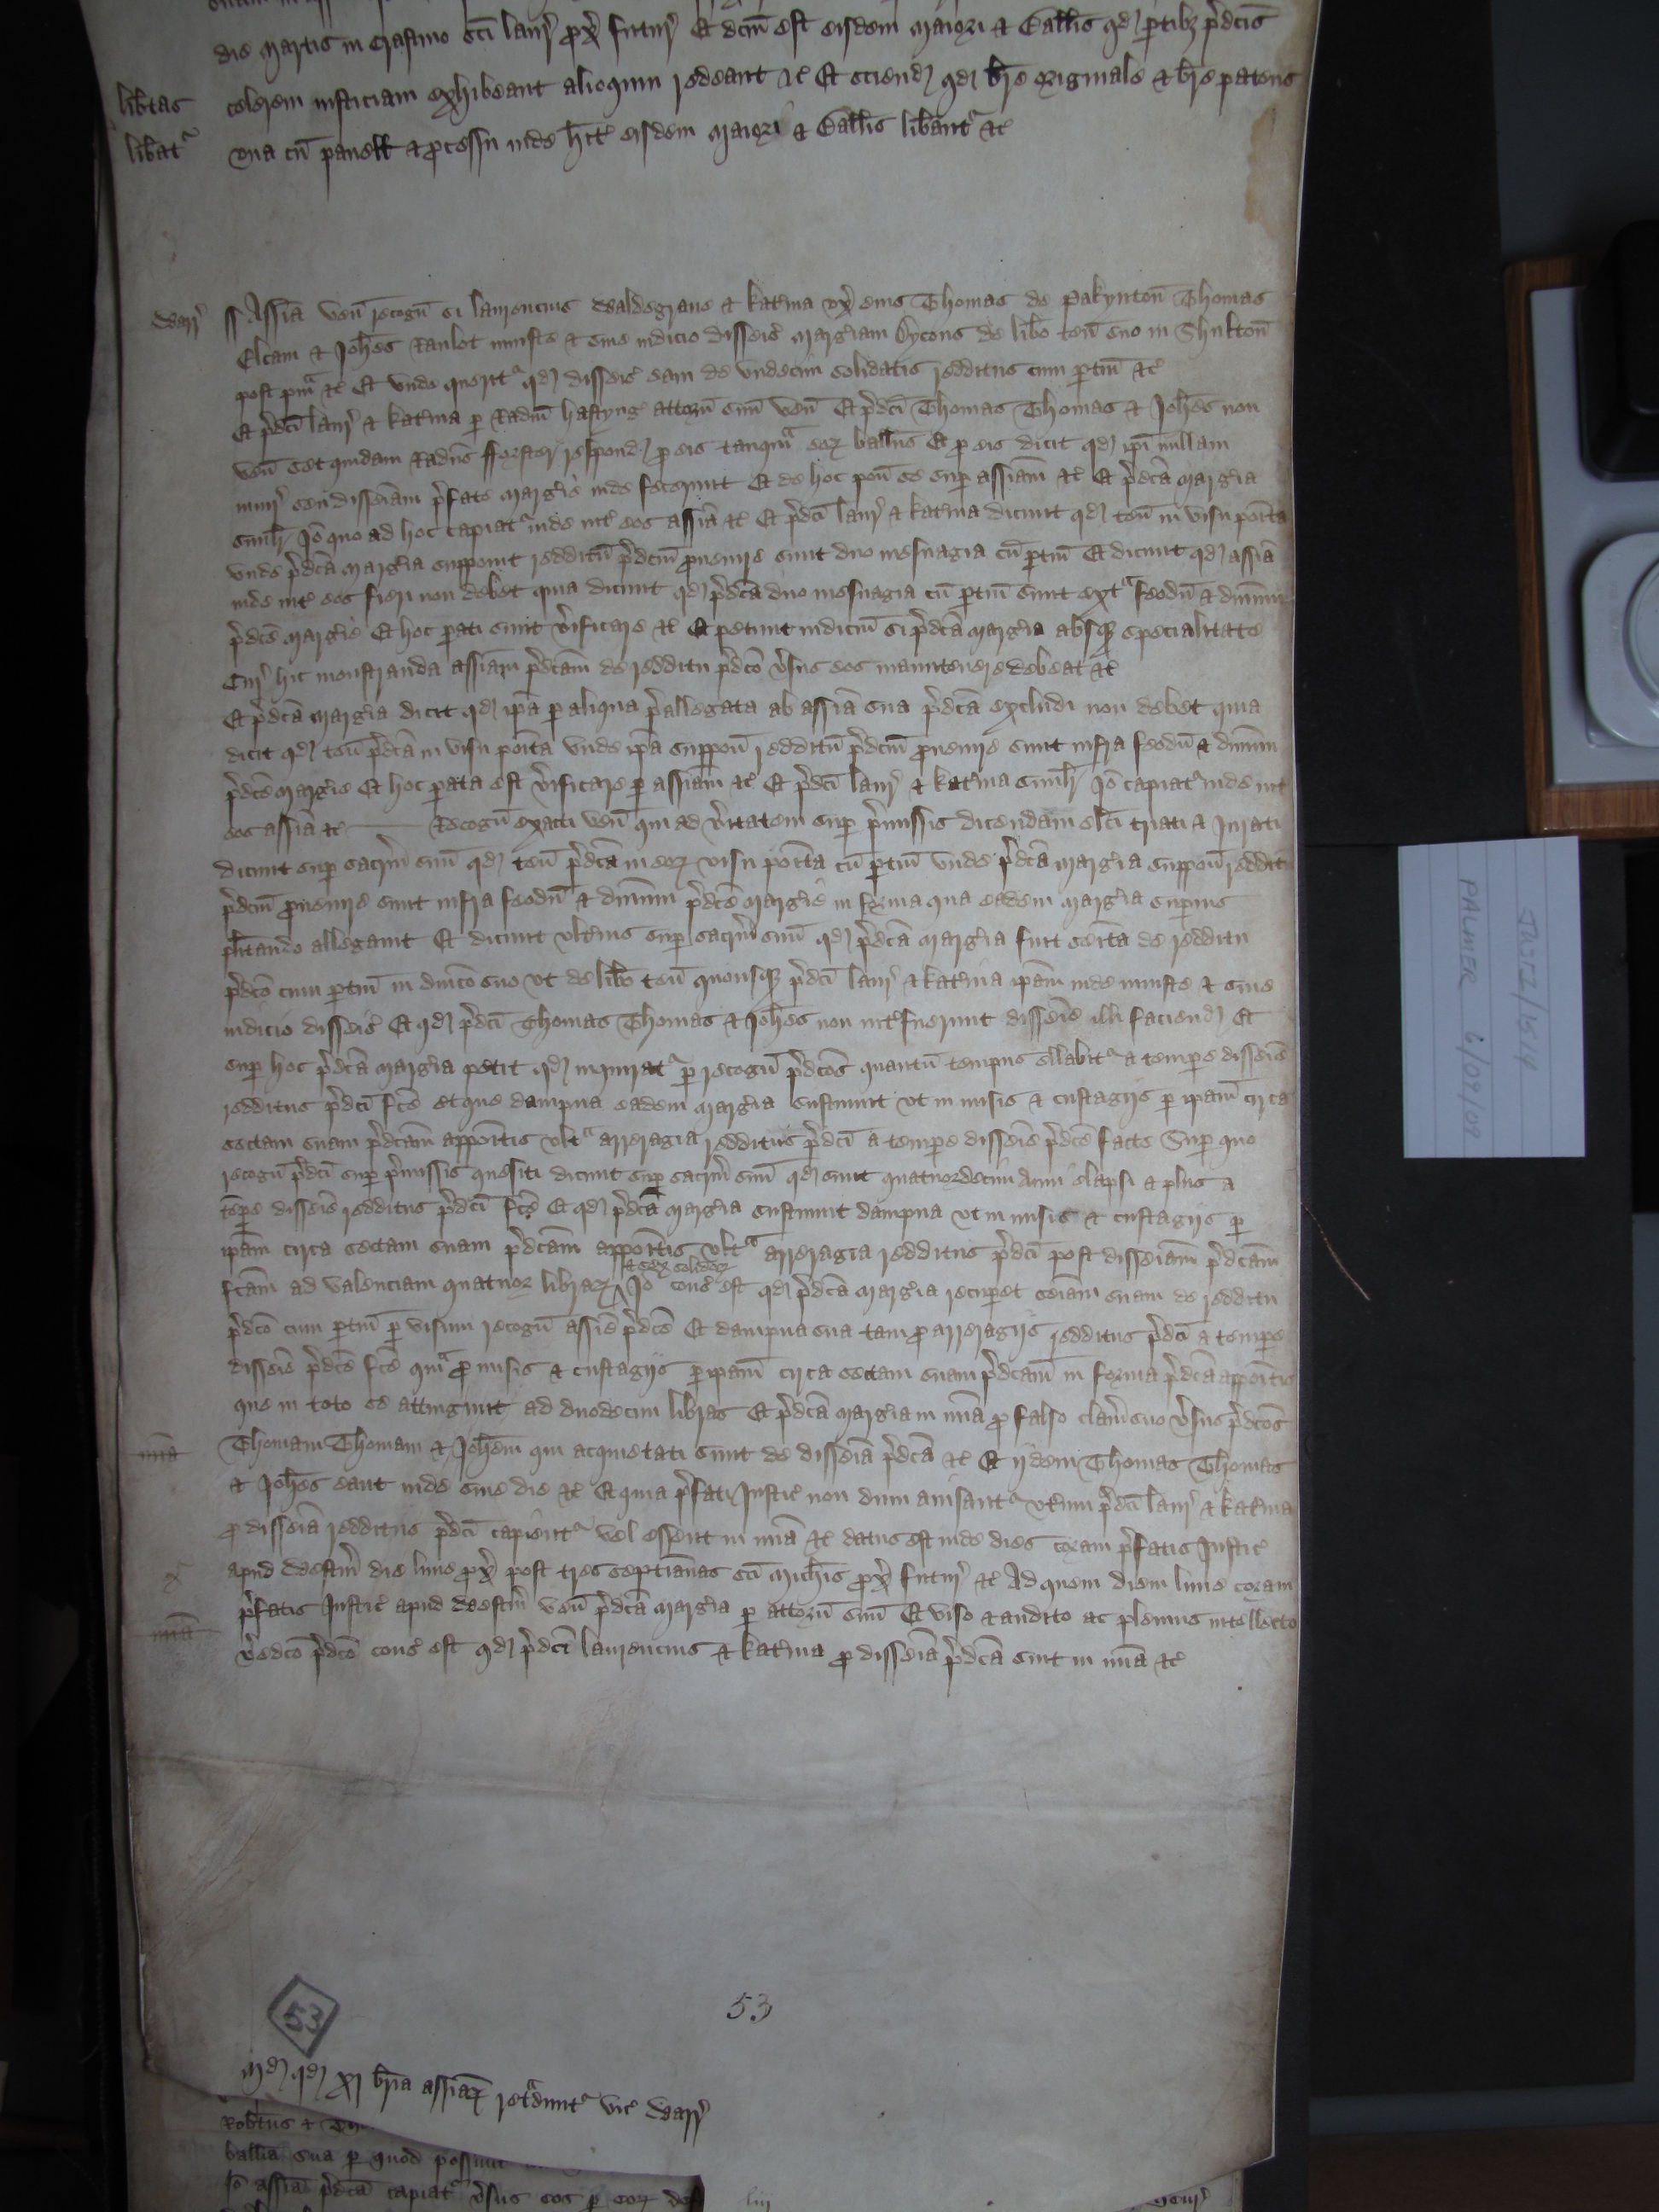 die martis in crastino sci laur prox futur Et dcm est eisdem maiori & Ballis qd ptibz pdcis
libtas celerem iusticiam exhibeant alioquin redeant &c Et sciend qd bre originale & bre patens
libat una cu panell & pcessu inde hit eisdem maiori & Ballis libant &c
Warr Assia ven recogn si laurencius Waldegraue & katina ux eius Thomas de Pakynton Thomas
Elcam & Johes Raulot iniuste & sine iudicio disseis margiam Dycons de libo ten suo in Shulton
post pm &c Et unde querit qd disseis eam de undecim solidatis redditus cum ptin &c
Et pdci laur & katina p Radm hastyng attorn suu ven Et pdci Thomas Thomas & Johes non
ven set quidam Radus fforster respond p eis tanqm eoz ballus Et p eis dicit qd ipi nullam
iniur seu disseiam pfate margie inde fecerunt Et de hoc pon se sup assiam &c Et pdca margia
simil Io quo ad hoc capiat inde int eos assia &c Et pdci laur & katina dicunt qd ten in visu poita
unde pdca margia supponit redditu pdcm puenire sunt duo mesuagia cu ptin Et dicunt qd assia
inde int eos fieri non debet quia dicunt qd pdca duo mesuagia cu ptin sunt ext feodu & dnium
pdce margie Et hoc pati sunt vificare &c Et petunt iudicm si pdca margia absqz specialitate
Cur hic monstranda assiam pdcam de redditu pdco vsus eos manutenere debeat &c
Et pdca margia dicit qd ipa p aliqua pallegata ab assia sua pdca excludi non debet quia
dicit qd ten pdca in visu poita unde ipa suppon redditu pdcm puenire sunt infra feodu & dnium
pdce margie Et hoc pata est vificare p assiam &c Et pdci laur & katina simil Io capiat inde int
eos assia &c Recogn exacti ven qui ad vitatem sup pmissis dicendam elci triati & Jurati
dicunt sup sacrm suu qd ten pdca in eoz visu poita cu ptin unde pdca margia suppon reddit
pdcm puenire sunt infra feodu & dnium pdce margie in forma qua eadem margia supius
plitando allegauit Et dicunt ultius sup sacrm suu qd pdca margia fuit seita de redditu
pdco cum ptin in dnico suo ut de libo ten quousqz pdci laur & katina ipam inde iniuste & sine
iudicio disseis Et qd pdci Thomas Thomas & Johes non intfuerunt disseie illi faciend Et
sup hoc pdca margia petit qd inquirat p recogn pdcos quantu tempus ellabit a tempe disseie
redditus pdci fce et que dampna eadem margia sustinuit ut in misis & custagijs p ipam circa
sectam suam pdcam appoitis ult arreragia redditus pdci a tempe disseie pdce facte Sup quo
recogn pdci sup pmissis quesiti dicunt sup sacrm suu qd sunt quatuordecim Anni elapsi & plus a
tepe disseie redditus pdci fce Et qd pdca margia sustinuit dampna ut in misis & custagijs p
ipam circa sectam suam pdcam appoitis ult arreragia redditus pdci post disseiam pdcam
fcam ad valenciam quatuor libraz & sex solidoz Io cons est qd pdca margia recupet seiam suam de redditu
pdco cum ptin p visum recogn assie pdce Et dampna sua tam p arreragijs redditus pdci a tempe
disseie pdce fce qm p misis & custagijs p ipam circa sectam suam pdcam in forma pdca appoitis
que in toto se attingunt ad duodecim libras Et pdca margia in mia p falso clam suo vsus pdcos
mia Thomam Thomam & Johem qui acquietati sunt de disseia pdca &c Et ijdem Thomas Thomas
& Johes eant inde sine die &c Et quia pfati Justic non dum auisant utrum pdci laur & katina
p disseia redditus pdci capient vel essent in mia &c datus est inde dies coram pfatis Justic
apud Westm die lune prox post tres septianas sci Michis prox futur &c Ad quem diem lune coram
pfatis Justic apud Westm ven pdca margia p attorn suu Et viso & audito ac plenius intellecto
mia vedco pdco cons est qd pdci laurencius & katina p disseia pdca sint in mia &c
53
53
Md qd xj bria assiaz retdunt vic Warr
Robtus &
ballia sua p quod possunt
Io assia pdca capiat vsus eos p eoz def
liij
JUST2/1514
PALMER 6/02/09